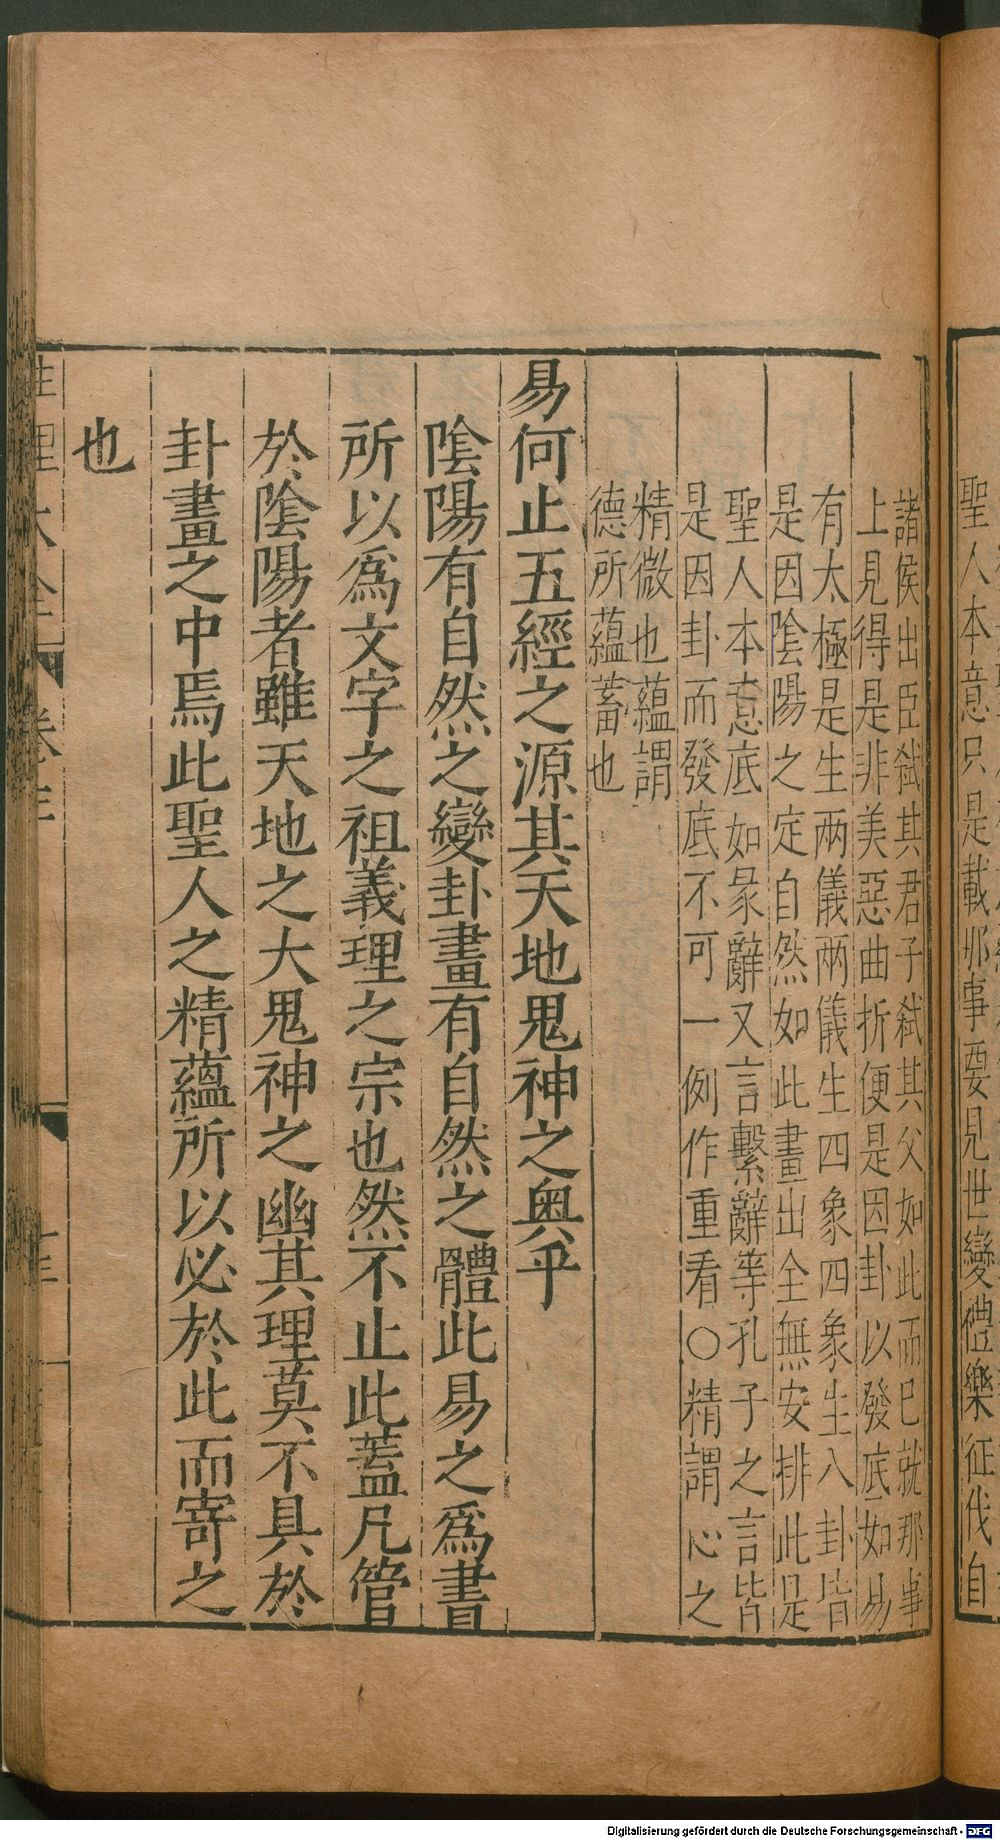 聖人本意只是載那事要見世變禮樂征伐自
諸侯出臣弒其君子弒其父如此而已就那事
上見得是非美惡曲折便是因卦以發底如易
有太極是生兩儀兩儀生四象四象生八卦皆
是因陰陽之定自然如此畫出全無安排此是
聖人本意底如彖辭又言繫辭等孔子之言皆
是因卦而發底不可一例作重看○精謂心之
精微也蘊謂
德所蘊蓄也
易何止五經之源其天地鬼神之奥乎
陰陽有自然之變卦畫有自然之體此易之爲書
所以爲文字之祖義理之宗也然不止此蓋凡管
於陰陽者雖天地之大鬼神之幽其理莫不具於
卦畫之中焉此聖人之精蘊所以必於此而寄之
也
性理大全 卷三
Digitalisierung gefördert durch die Deutsche Forschungsgemeinschaft - DFG